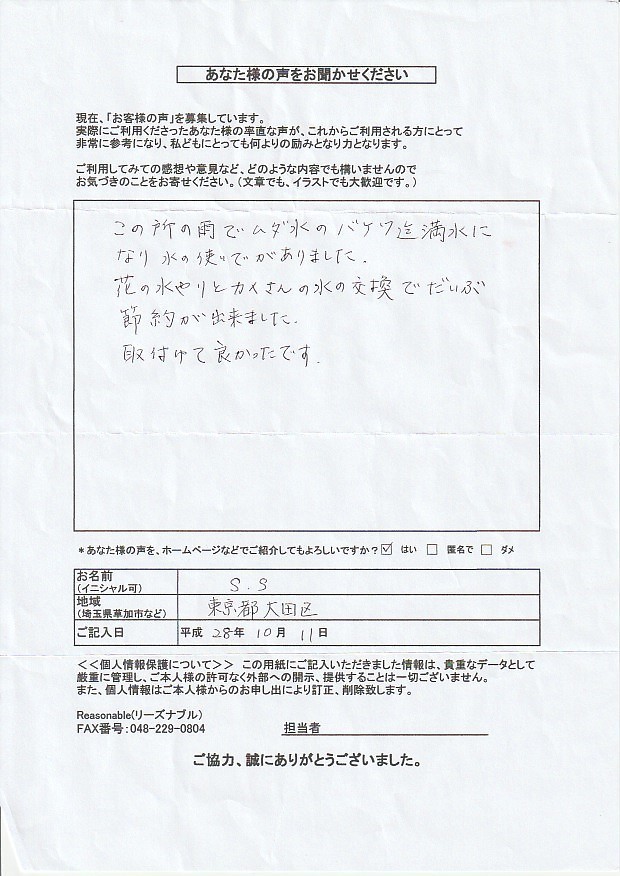 あなた様の声をお聞かせください
現在、「お客様の声」を募集しています。
実際にご利用くださったあなた様の率直な声が、これからご利用される方にとって
非常に参考になり、私どもにとっても何よりの励みとなり力となります。
ご利用してみての感想や意見など、どのような内容でも構いませんので
お気づきのことをお寄せください。(文章でも、イラストでも大歓迎です。)
この所の雨でムダ水のバケツ迄満水に
なり水の使いでがありました.
花の水やりとカメさんの水の交換でだいぶ
節約が出来ました.
取付けて良かったです.
*あなた様の声を、ホームページなどでご紹介してもよろしいですか? ☑ はい □ 匿名で □ ダメ
お名前
(イニシャル可)
S.S
地域
(埼玉県草加市など)
東京都大田区
ご記入日 平成 28年 10月 11日
<<個人情報保護について>> この用紙にご記入いただきました情報は、貴重なデータとして
厳重に管理し、ご本人様の許可なく外部への開示、提供することは一切ございません。
また、個人情報はご本人様からのお申し出により訂正、削除致します。
Reasonable(リーズナブル)
FAX番号:048-229-0804 担当者
ご協力、誠にありがとうございました。